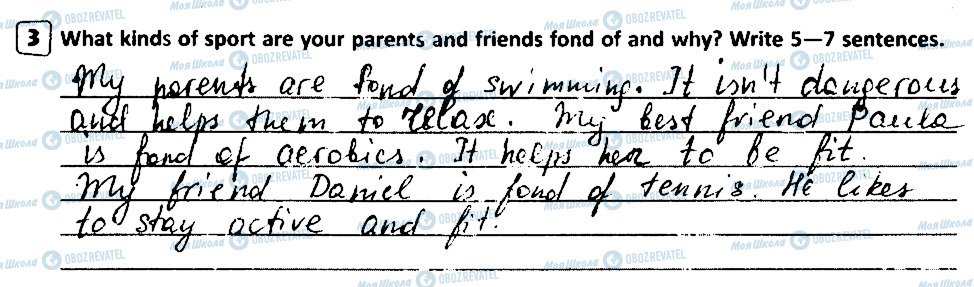 3 What kinds of sport are your parents and friends fond of and why? Write 5—7 sentences.
My parents are fond of swimming. It isn't dangerous
and helps them to relax. My best friend Paula
is fond of aerobics. It helps her to be fit.
My friend Daniel is fond of tennis. He likes
to stay active and fit.